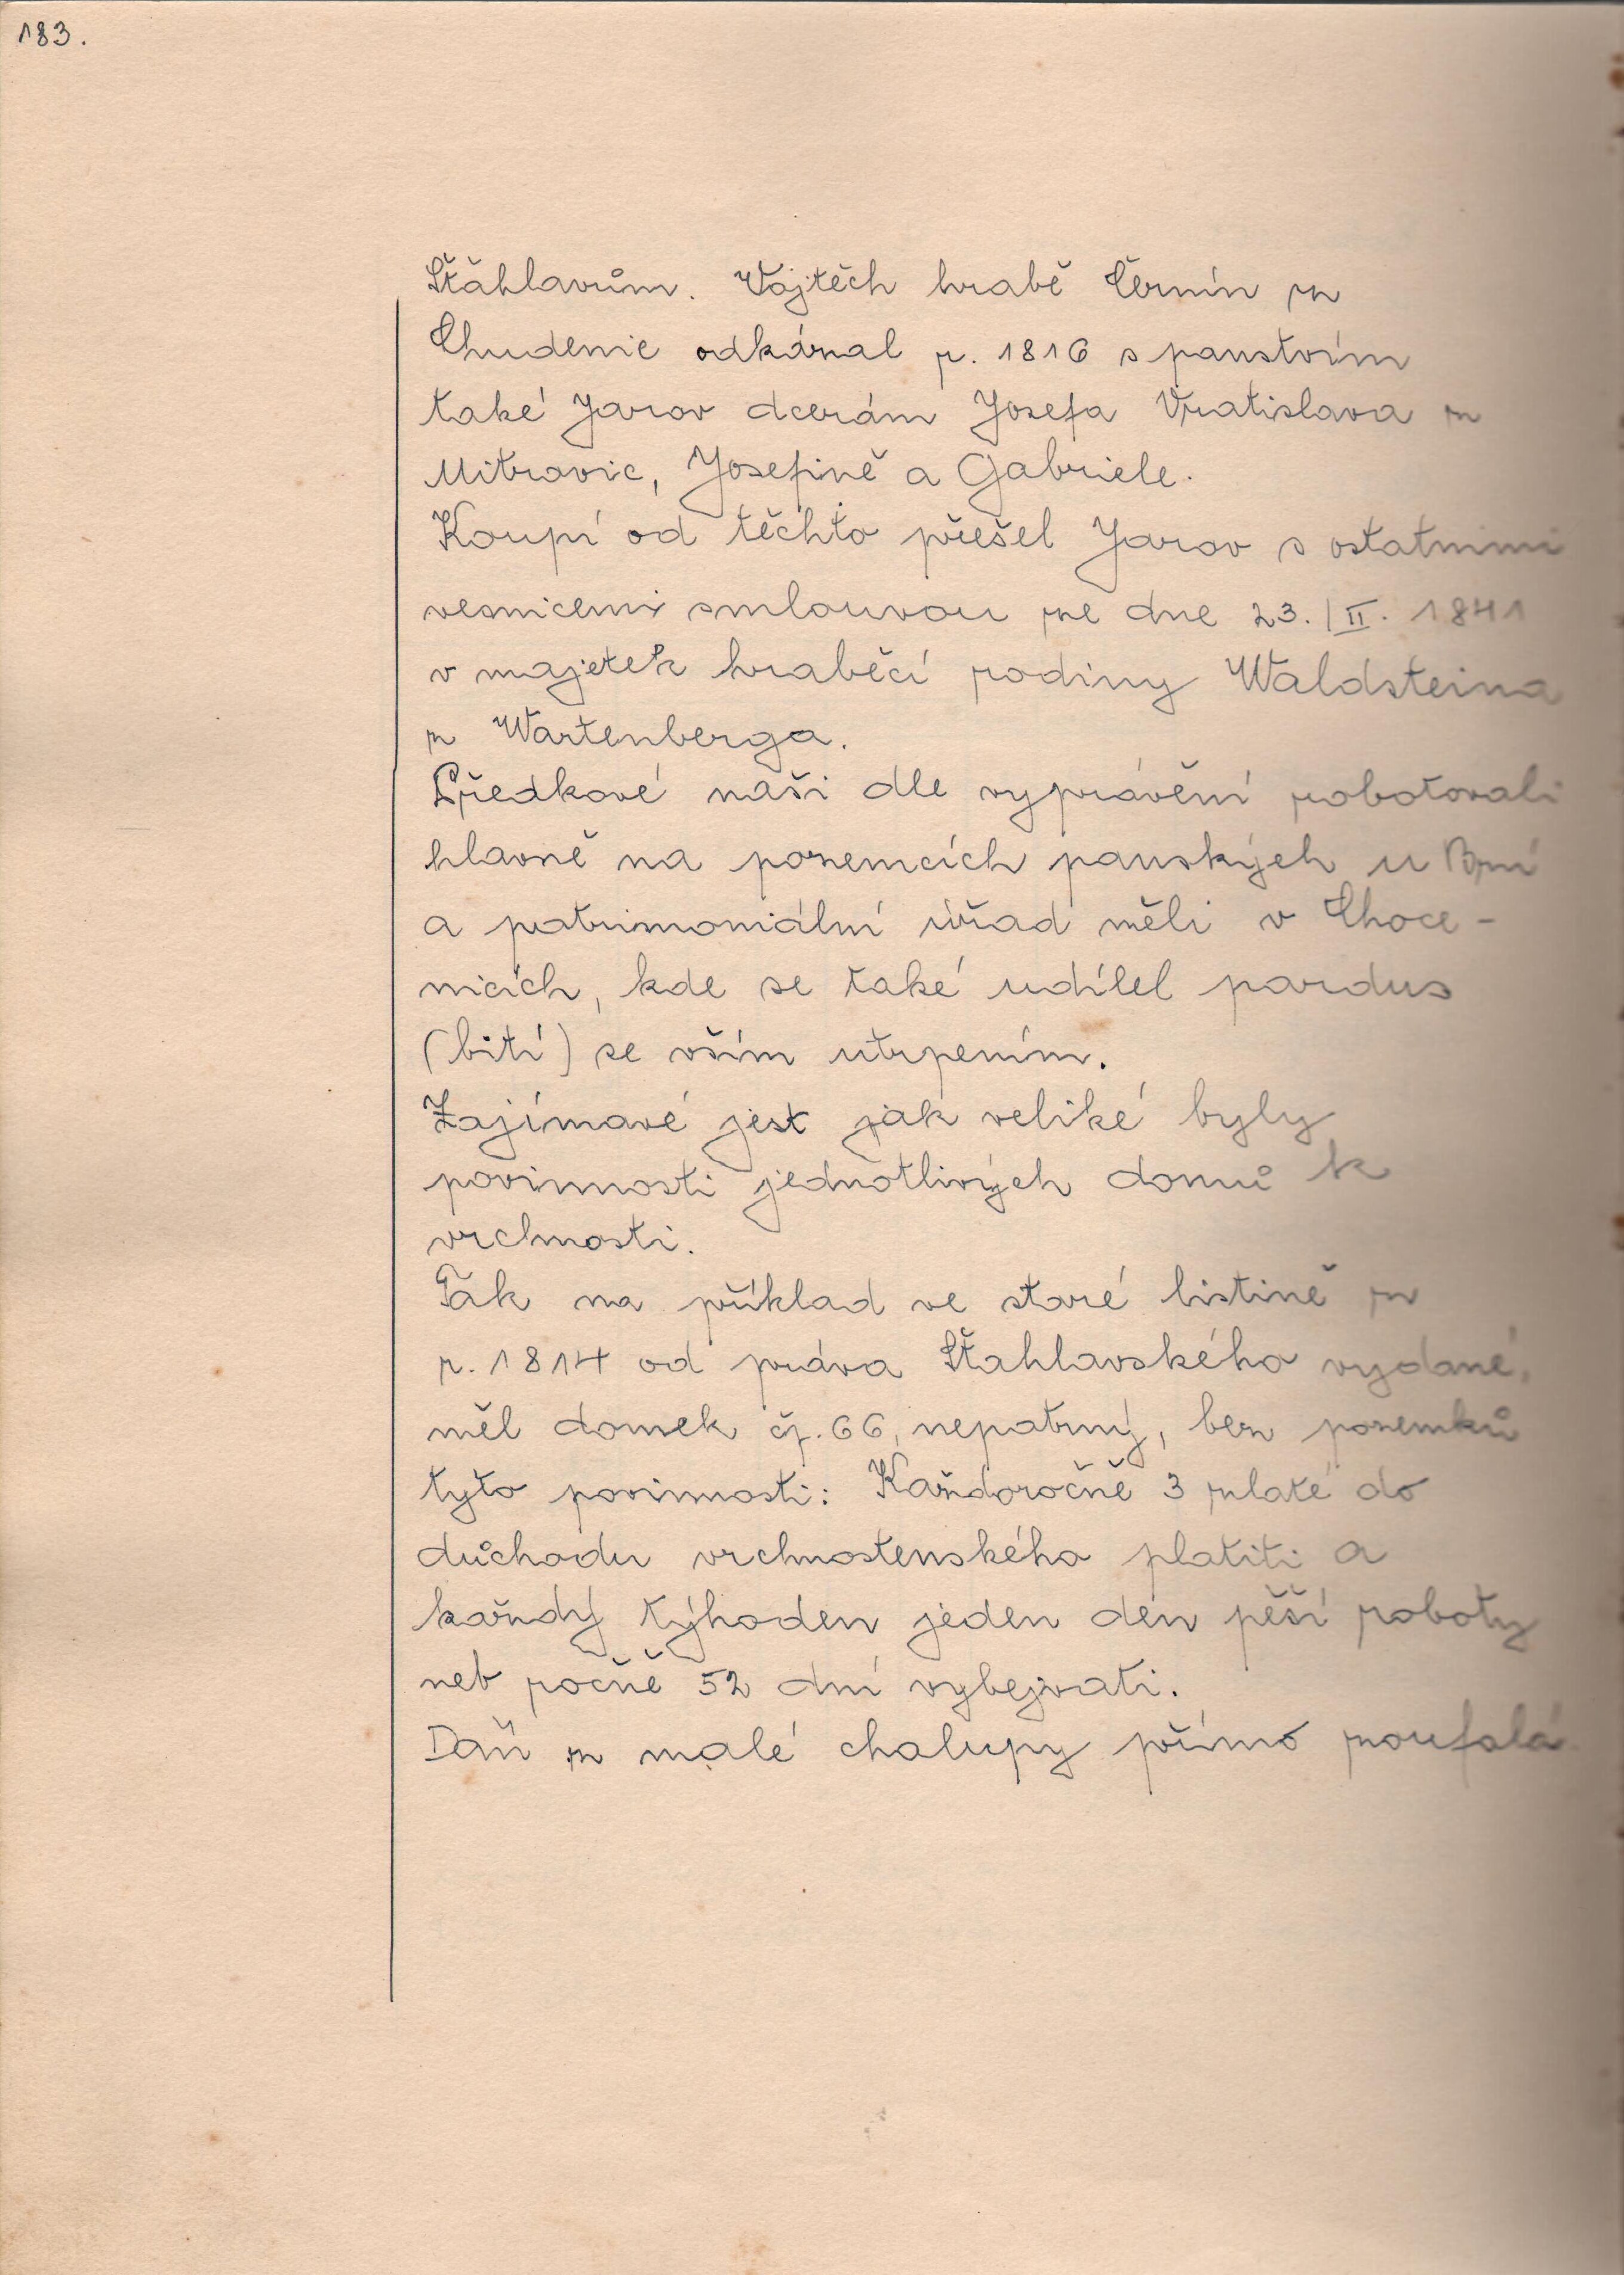 183.
Šťáhlavům. Vojtěch hrabě Černín z
Chudenic odkázal r. 1816 s panstvím
také Jarov dcerám Josefa Vratislava z
Mitrovic, Josefině a Gabriele.
Koupí od těchto přešel Jarov s ostatními
vesnicemi smlouvou ze dne 23./II. 1841
v majetek hraběcí rodiny Waldsteina
z Wartenberga.
Předkové naši dle vyprávění robotovali
hlavně na pozemcích panských u Brní
a patrimoniální úřad měli v Choce-
nicích, kde se také udílel pardus
(bití) se vším utrpením.
Zajímavé jest jak veliké byly
povinnosti jednotlivých domů k
vrchnosti.
Tak na příklad ve staré listině z
r. 1814 od práva Šťahlavského vydané,
měl domek čp. 66, nepatrný, bez pozemků
tyto povinnosti: Každoročně 3 zlaté do
důchodu vrchnostenského platiti a
každý týhoden jeden den pěší roboty
neb ročně 52 dní vybejvati.
Daň z malé chalupy přímo zoufalá